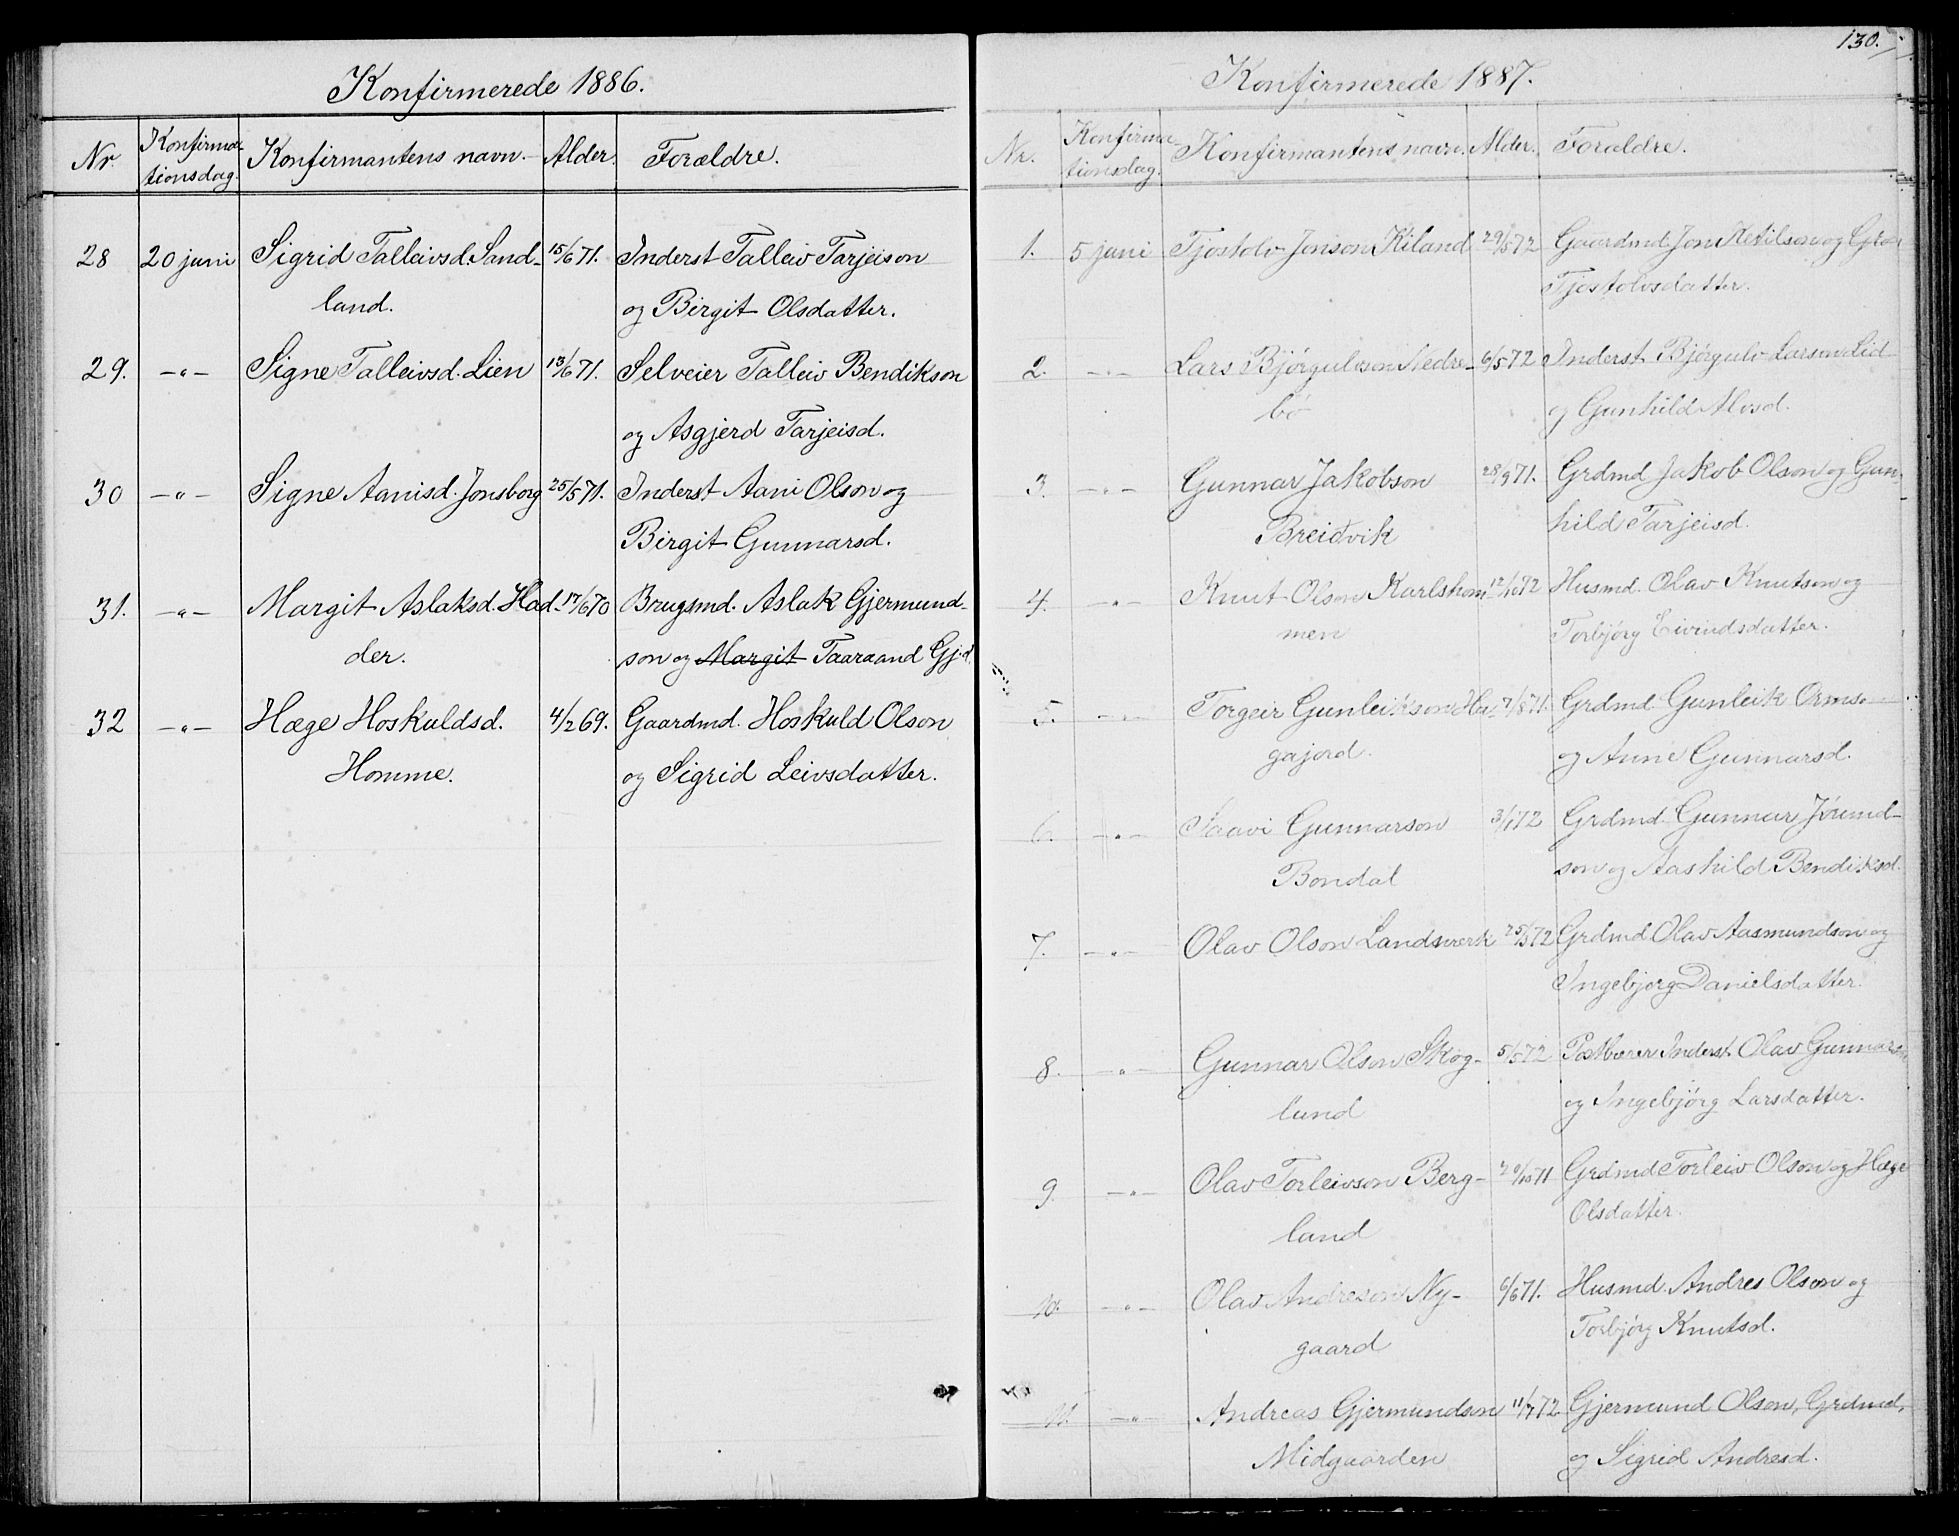 Konfirmerede 1886.
Nr. Konfirma- Konfirmantens navn. Alder. Forældre.
tionsdag.
28 20 juni Sigrid Talleivsd. Sand- 15/6 71. Inderst Talleiv Tarjeison
land. og Birgit Olsdatter.
29. -"- Signe Talleivsd. Lien 13/6 71. Selveier Talleiv Bendikson
og Asgjerd Tarjeisd.
30 -"- Signe Aanisd. Jonsborg 25/5 71. Inderst Aani Olson og
Birgit Gunnarsd.
31. -"- Margit Aslaksd. Had- 17/6 70 Brugsmd. Aslak Gjermund-
der. son og Margit Taaraand Gj.d.
32 -"- Hæge Hoskuldsd. 4/2 69. Gaardmd. Hoskuld Olson
Homme. og Sigrid Leivsdatter.
130.
Konfirmerede 1887.
Nr. Konfirma- Konfirmantens navn. Alder. Forældre.
tionsdag.
1. 5 juni Tjostolv Jonson Kiland 29/5 72 Gaardmd. Jon Ketilson og Gro
Tjostolvsdatter.
2. -"- Lars Bjørgulvson Nedre- 6/5 72 Inderst Bjørgulv Larson Lid
bø og Gunhild Alvsd.
3. -"- Gunnar Jakobson 28/9 71. Grdmd Jakob Olson og Gun-
Breidvik hild Tarjeisd.
4. -"- Knut Olson Karlshom- 12/10 72 Husmd. Olav Knutson og
men Torbjørg Eivindsdatter.
5. -"- Torgeir Gunleikson Ha- 7/8 71. Grdmd Gunleik Ormso
gajord. og Anne Gunnarsd.
6. -"- Saavi Gunnarson 3/1 72 Grdmd. Gunnar Jørund-
Bondal son og Aashild Bendiksd.
7. -"- Olav Olson Landsverk 20/3 72 Grdmd Olav Aasmundson og
Ingebjørg Danielsdatter.
8. -"- Gunnar Olson Skog- 5/5 72 Postbærer Inderst Olav Gunnarson
lund og Ingebjørg Larsdatter.
9. -"- Olav Torleivson Berg- 20/10 71 Grdmd Torleiv Olson og Hæge
land Olsdatter.
10. -"- Olav Andreson Ny- 6/6 71. Husmd. Andres Olson og
gaard Torbjørg Knutsd.
11. -"- Andreas Gjermundson 11/7 72 Gjermund Olson, Grdmd,
Midgaarden og Sigrid Andresd.